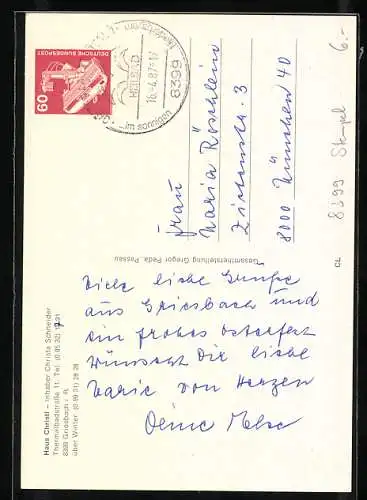 DEUTSCHE BUNDESPOST
60
8399
16.-4.87-17
HEILBAD
...im sonnigen
8399 Stempel 6.-
Frau
Maria Röschlein
8000 München 40
Gesamtherstellung Gregor Peda, Passau
CL
Viele liebe Grüße
aus Griesbach und
ein frohes Osterfest
wünscht Dir liebe
Marie von Herzen
Deine
Haus Christl – Inhaber Christa Schneider
Thermalbadstraße 11, Tel. (0 85 32)
8399 Griesbach i. R.
über Winter (0 99 31) 28 28